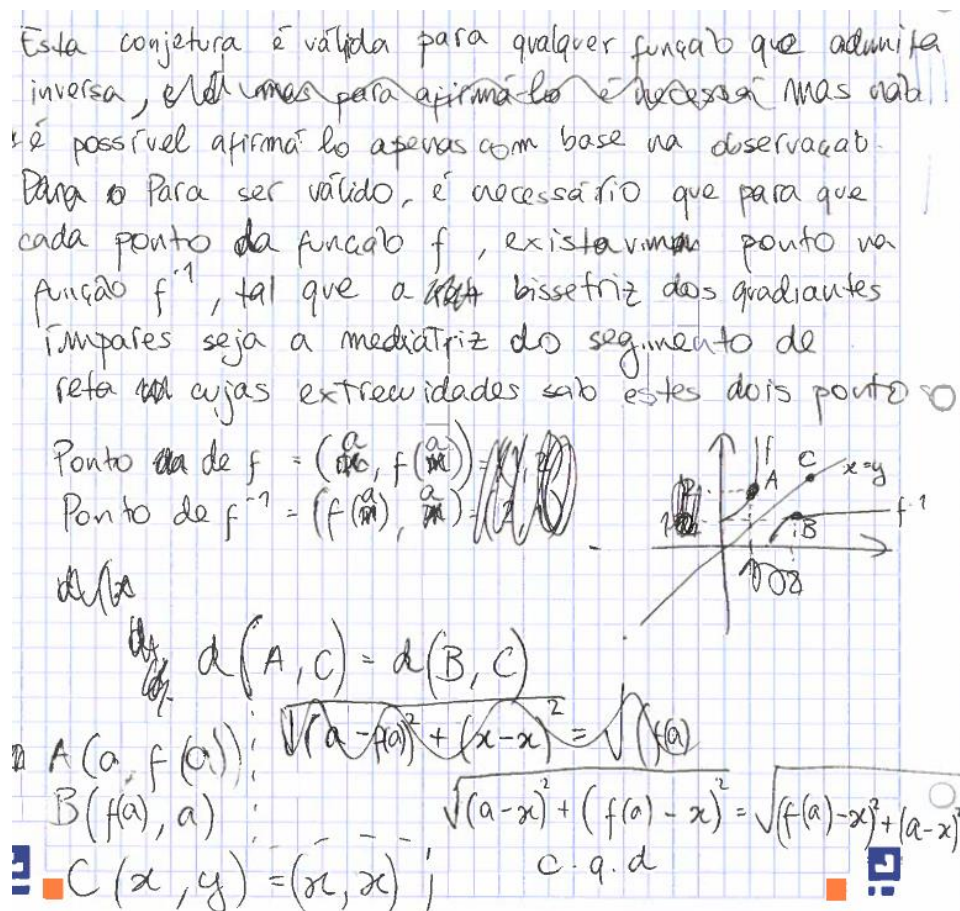 Esta conjetura é válida para qualquer função que admita
inversa, mas não
é possível afirmá-lo apenas com base na observação.
Para ser válido, é necessário que para que
cada ponto da função f, exista um ponto na
função f⁻¹, tal que a bissetriz dos quadiantes
ímpares seja a mediatriz do segmento de
reta cujas extremidades são estes dois ponto
Ponto de f = (a, f(a))
Ponto de f⁻¹ = (f(a), a)
A C x=y
B f⁻¹
f
d(A, C) = d(B, C)
A(a, f(a));
B(f(a), a);
C(x, y) = (x, x);
√((a-x)² + (f(a)-x)²) = √((f(a)-x)² + (a-x)²)
c.q.d